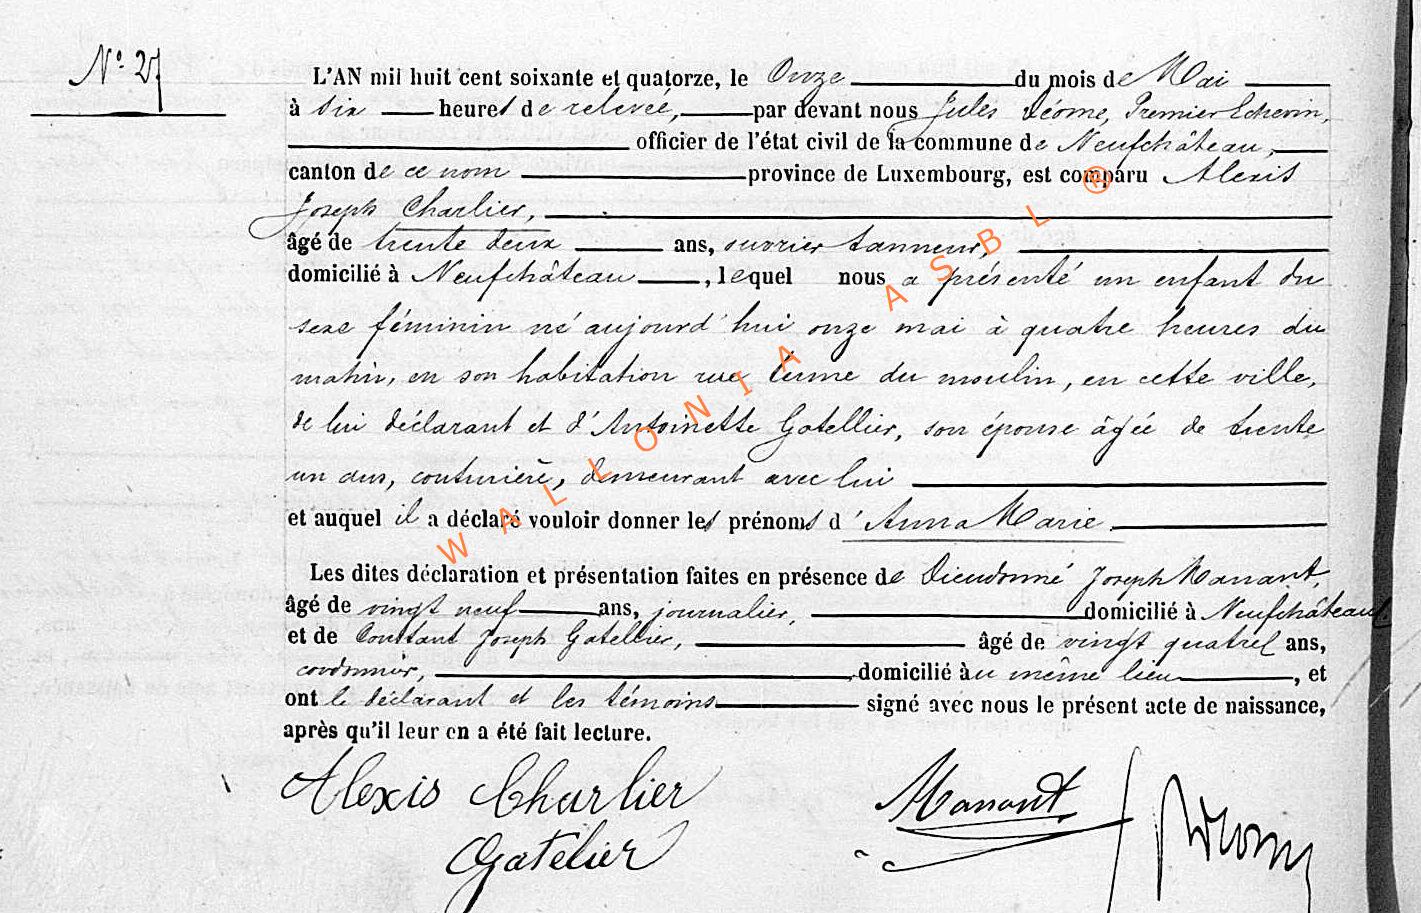 N° 27
L'AN mil huit cent soixante et quatorze, le Onze du mois de Mai
à six heures de relevée, par devant nous Jules Déome, Premier Echevin,
officier de l'état civil de la commune de Neufchâteau,
canton de ce nom province de Luxembourg, est comparu Alexis
Joseph Charlier,
âgé de trente deux ans, ouvrier tanneur,
domicilié à Neufchâteau, lequel nous a présenté un enfant du
sexe féminin né aujourd'hui onze mai à quatre heures du
matin, en son habitation rue du moulin, en cette ville,
de lui déclarant et d'Antoinette Gatellier, son épouse âgée de trente
un ans, couturière, demeurant avec lui
et auquel il a déclaré vouloir donner les prénoms d'Anna Marie.
Les dites déclaration et présentation faites en présence de Dieudonné Joseph Manant,
âgé de vingt neuf ans, journalier, domicilié à Neufchâteau
et de Constant Joseph Gatellier, âgé de vingt quatre ans,
cordonnier, domicilié au même lieu, et
ont le déclarant et les témoins signé avec nous le présent acte de naissance,
après qu'il leur en a été fait lecture.
Alexis Charlier
Manant
Gatelier
WALLONIA ASBL ®